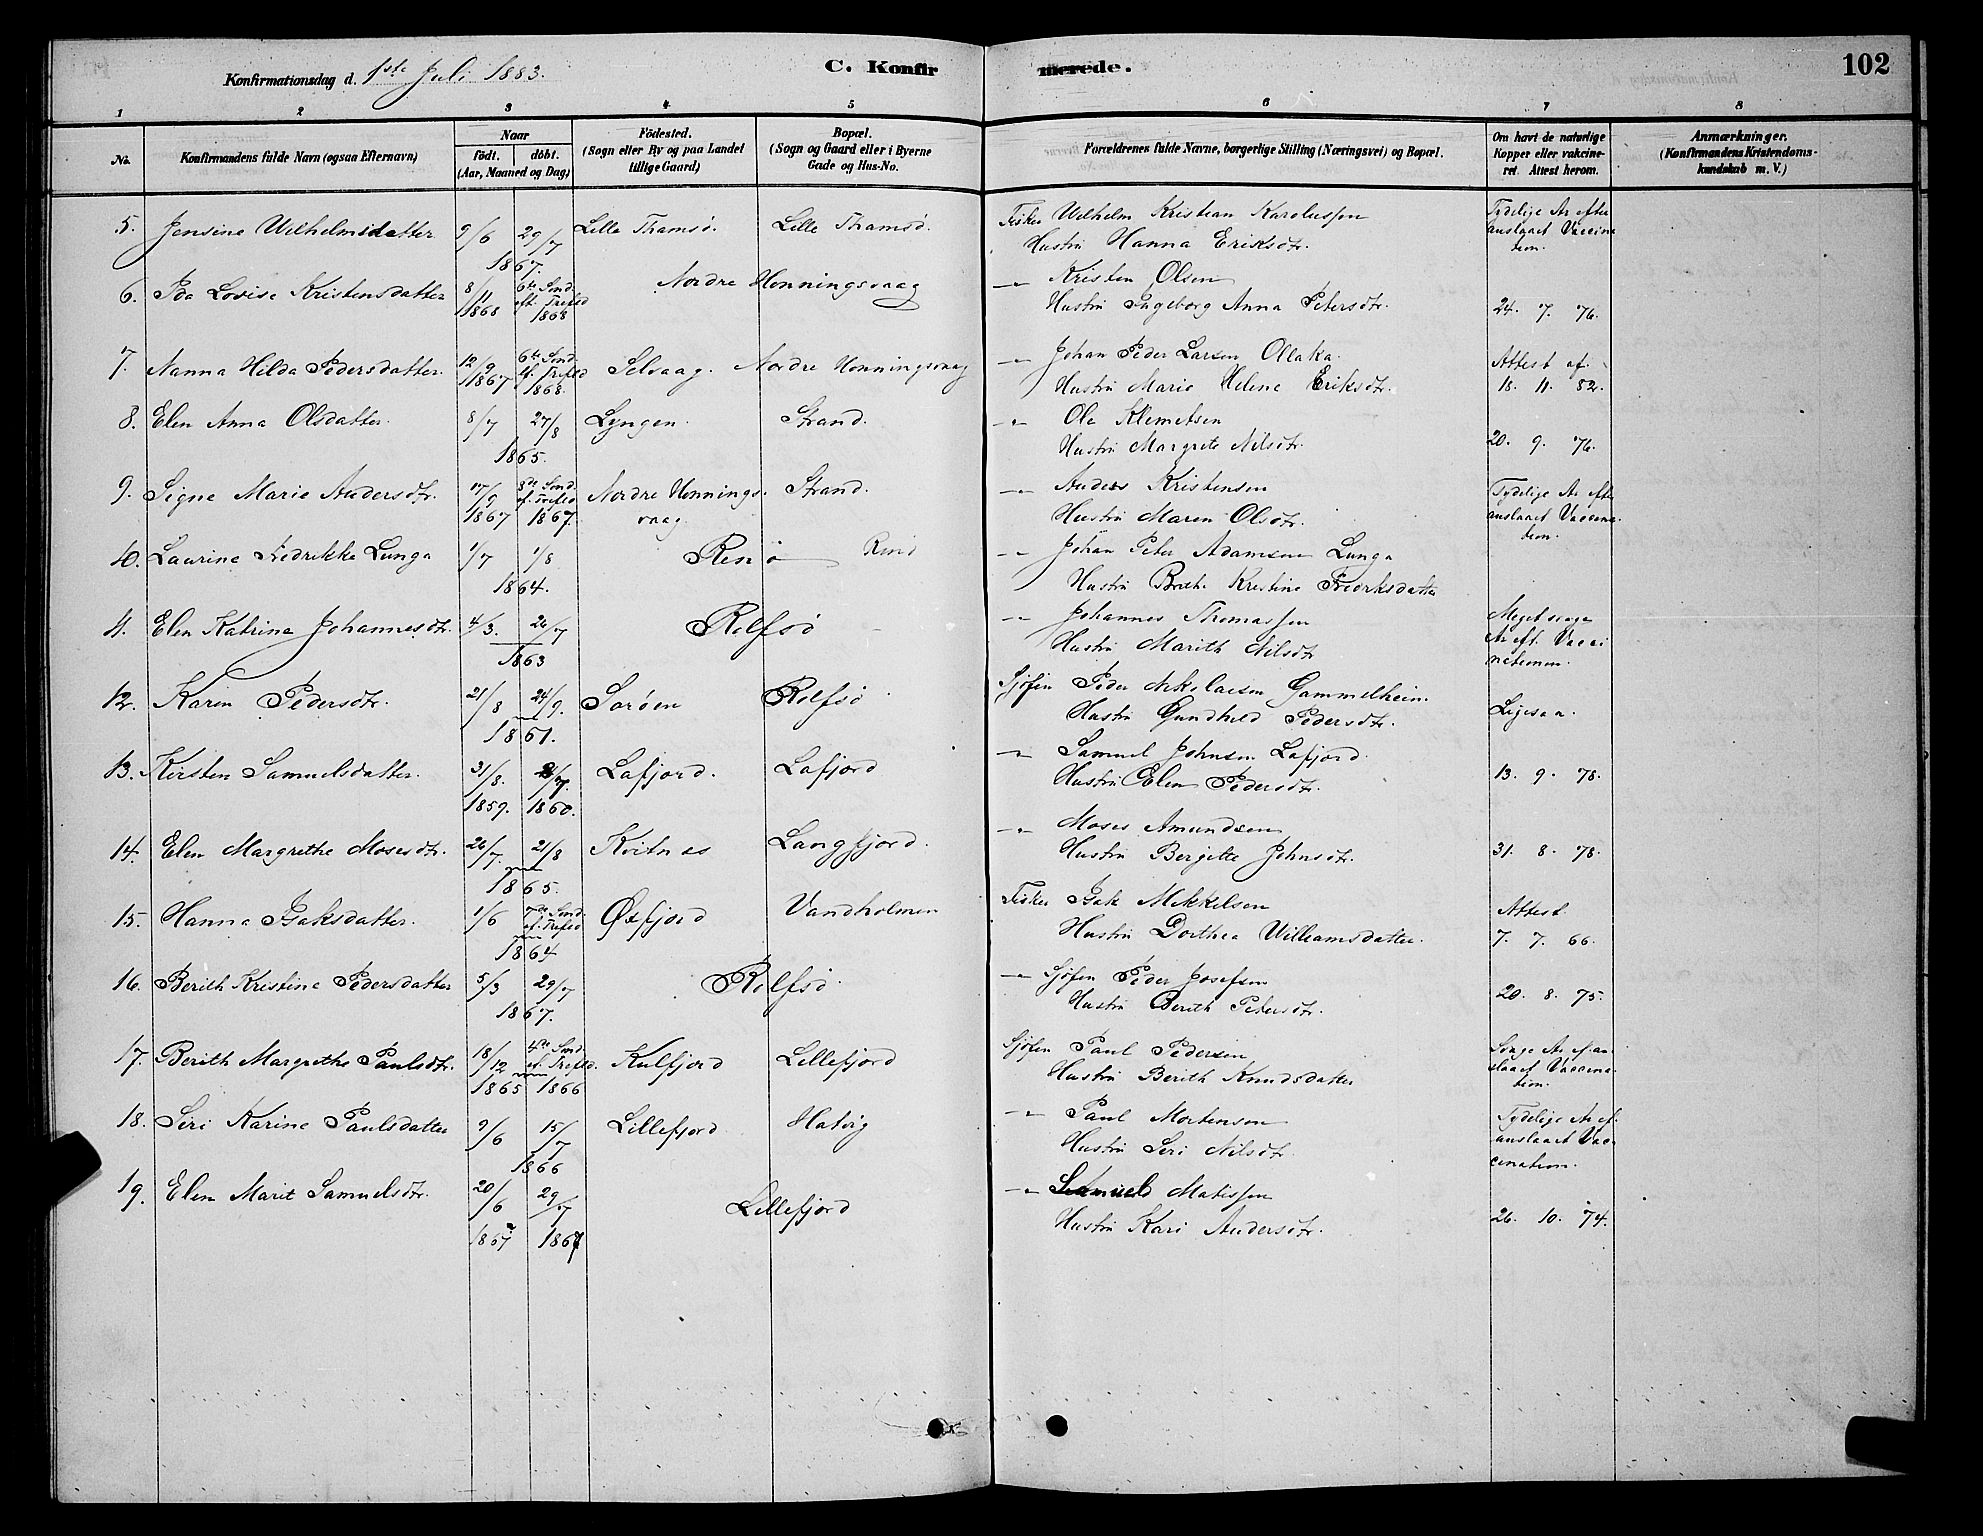 Konfirmationsdag d. 1ste Juli 1883.
C. Konfirmerede.
102
1 2 3 4 5 6 7 8
No.
Konfirmandens fulde Navn (ogsaa Efternavn)
Naar
födt. döbt.
(Aar, Maaned og Dag)
Födested.
(Sogn eller By og paa Landet
tillige Gaard)
Bopæl.
(Sogn og Gaard eller i Byerne
Gade og Hus-No.
Forældrenes fulde Navne, borgerlige Stilling (Næringsvei) og Bopæl.
Om havt de naturlige
Kopper eller vakcine-
ret. Attest herom.
Anmærkninger.
(Konfirmandens Kristendoms-
kundskab m. V.)
5. Jensine Wilhelmsdatter 9/6 29/7 Lille Thamsø. Lille Thamsø. Fisker Wilhelm Kristian Karolussen Tydelige Ar efter
1867. Hustru Hanna Eriksdtr. anslaaet Vaccina
tion.
6. Ida Lovise Kristensdatter 8/11 6te Sønd. Nordre Honningsvaag -"- Kristen Olsen
1868 eft. Trefld 1868 Hustru Ingeborg Anna Petersdtr. 24. 7. 76.
7. Nanna Hilda Pedersdatter. 12/9 6te Sønd. Selvaag. Nordre Honningsvaag -"- Johan Peder Larsen Ollaka. Attest af.
1867 ef. Trefld 1868. Hustru Marie Helene Eriksdtr. 18. 11. 82.
8. Elen Anna Olsdatter. 8/7 27/8 Lyngen. Strand. -"- Ole Klemetsen
1865. Hustru Margrete Nilsdtr. 20. 9. 76.
9. Signe Marie Andersdtr. 17/9 8de Sønd. Nordre Honnings- Strand. -"- Anders Kristensen Tydelige Ar efter
1867 ef. Trefld 1867. vaag Hustru Maren Olsdtr. anslaaet Vaccina-
tion.
10. Laurine Fredrikke Lunga 1/7 1/8 Renø -"- Johan Peter Adamsen Lunga
1864. Hustru Brith. Kristine Fredriksdatter
11. Elen Katrina Johannesdtr. 4/3. 26/7 Rolfsø -"- Johannes Thomassen Meget svage
1863 Hustru Marith Nilsdtr Ar eft. Vacci
nationen.
12. Karen Pedersdtr. 21/8 24/9. Sørøen Rolfsø Sjøfin Peder Nikolaisen Gammelheim.
1861. Hustru Gundhild Pedersdtr. Ligesaa.
13. Kirsten Samuelsdatter. 31/8. Lafjord. Lafjord -"- Samuel Johnsen Lafjord.
1859. 1860. Hustru Elen Pedersdtr. 13. 9. 78.
14. Elen Margrethe Mosesdtr. 26/7. 21/8 Kvitnes Langfjord. -"- Moses Amundsen
1865. Hustru Bergitte Johnsdtr. 31. 8. 78.
15. Hanna Isaksdatter. 1/6 7de Sønd. Øxfjord Vandholmen Fisker Isak Mikkelsen Attest
ef. Trefld 1864 Hustru Dorthea Williamsdatter. 7. 7. 66.
16. Berith Kristine Pedersdatter 5/3 29/7 Rolfsø. -"- Sjøfin Peder Josefsen
1867. Hustru Berith Pedersdtr. 20. 8. 75.
17. Berith Margrethe Paulsdtr. 18/12 4de Sønd. Kulfjord Lillefjord Sjøfin Paul Pedersen Svage Ar ef an-
1865 ef. Trefld. 1866 Hustru Berith Knudsdatter slaaet Vaccina-
tion.
18. Siri Karine Paulsdatter 9/6 15/7 Lillefjord Hatvig -"- Paul Mortensen Tydelige Ar ef.
1866 Hustru Siri Nilsdtr. anslaaet Vac-
cination.
19. Elen Marit Samuelsdtr. 20/6 29/7 Lillefjord -"- Samuel Matissen
1867 1867 Hustru Kari Andersdtr. 26. 10. 74.